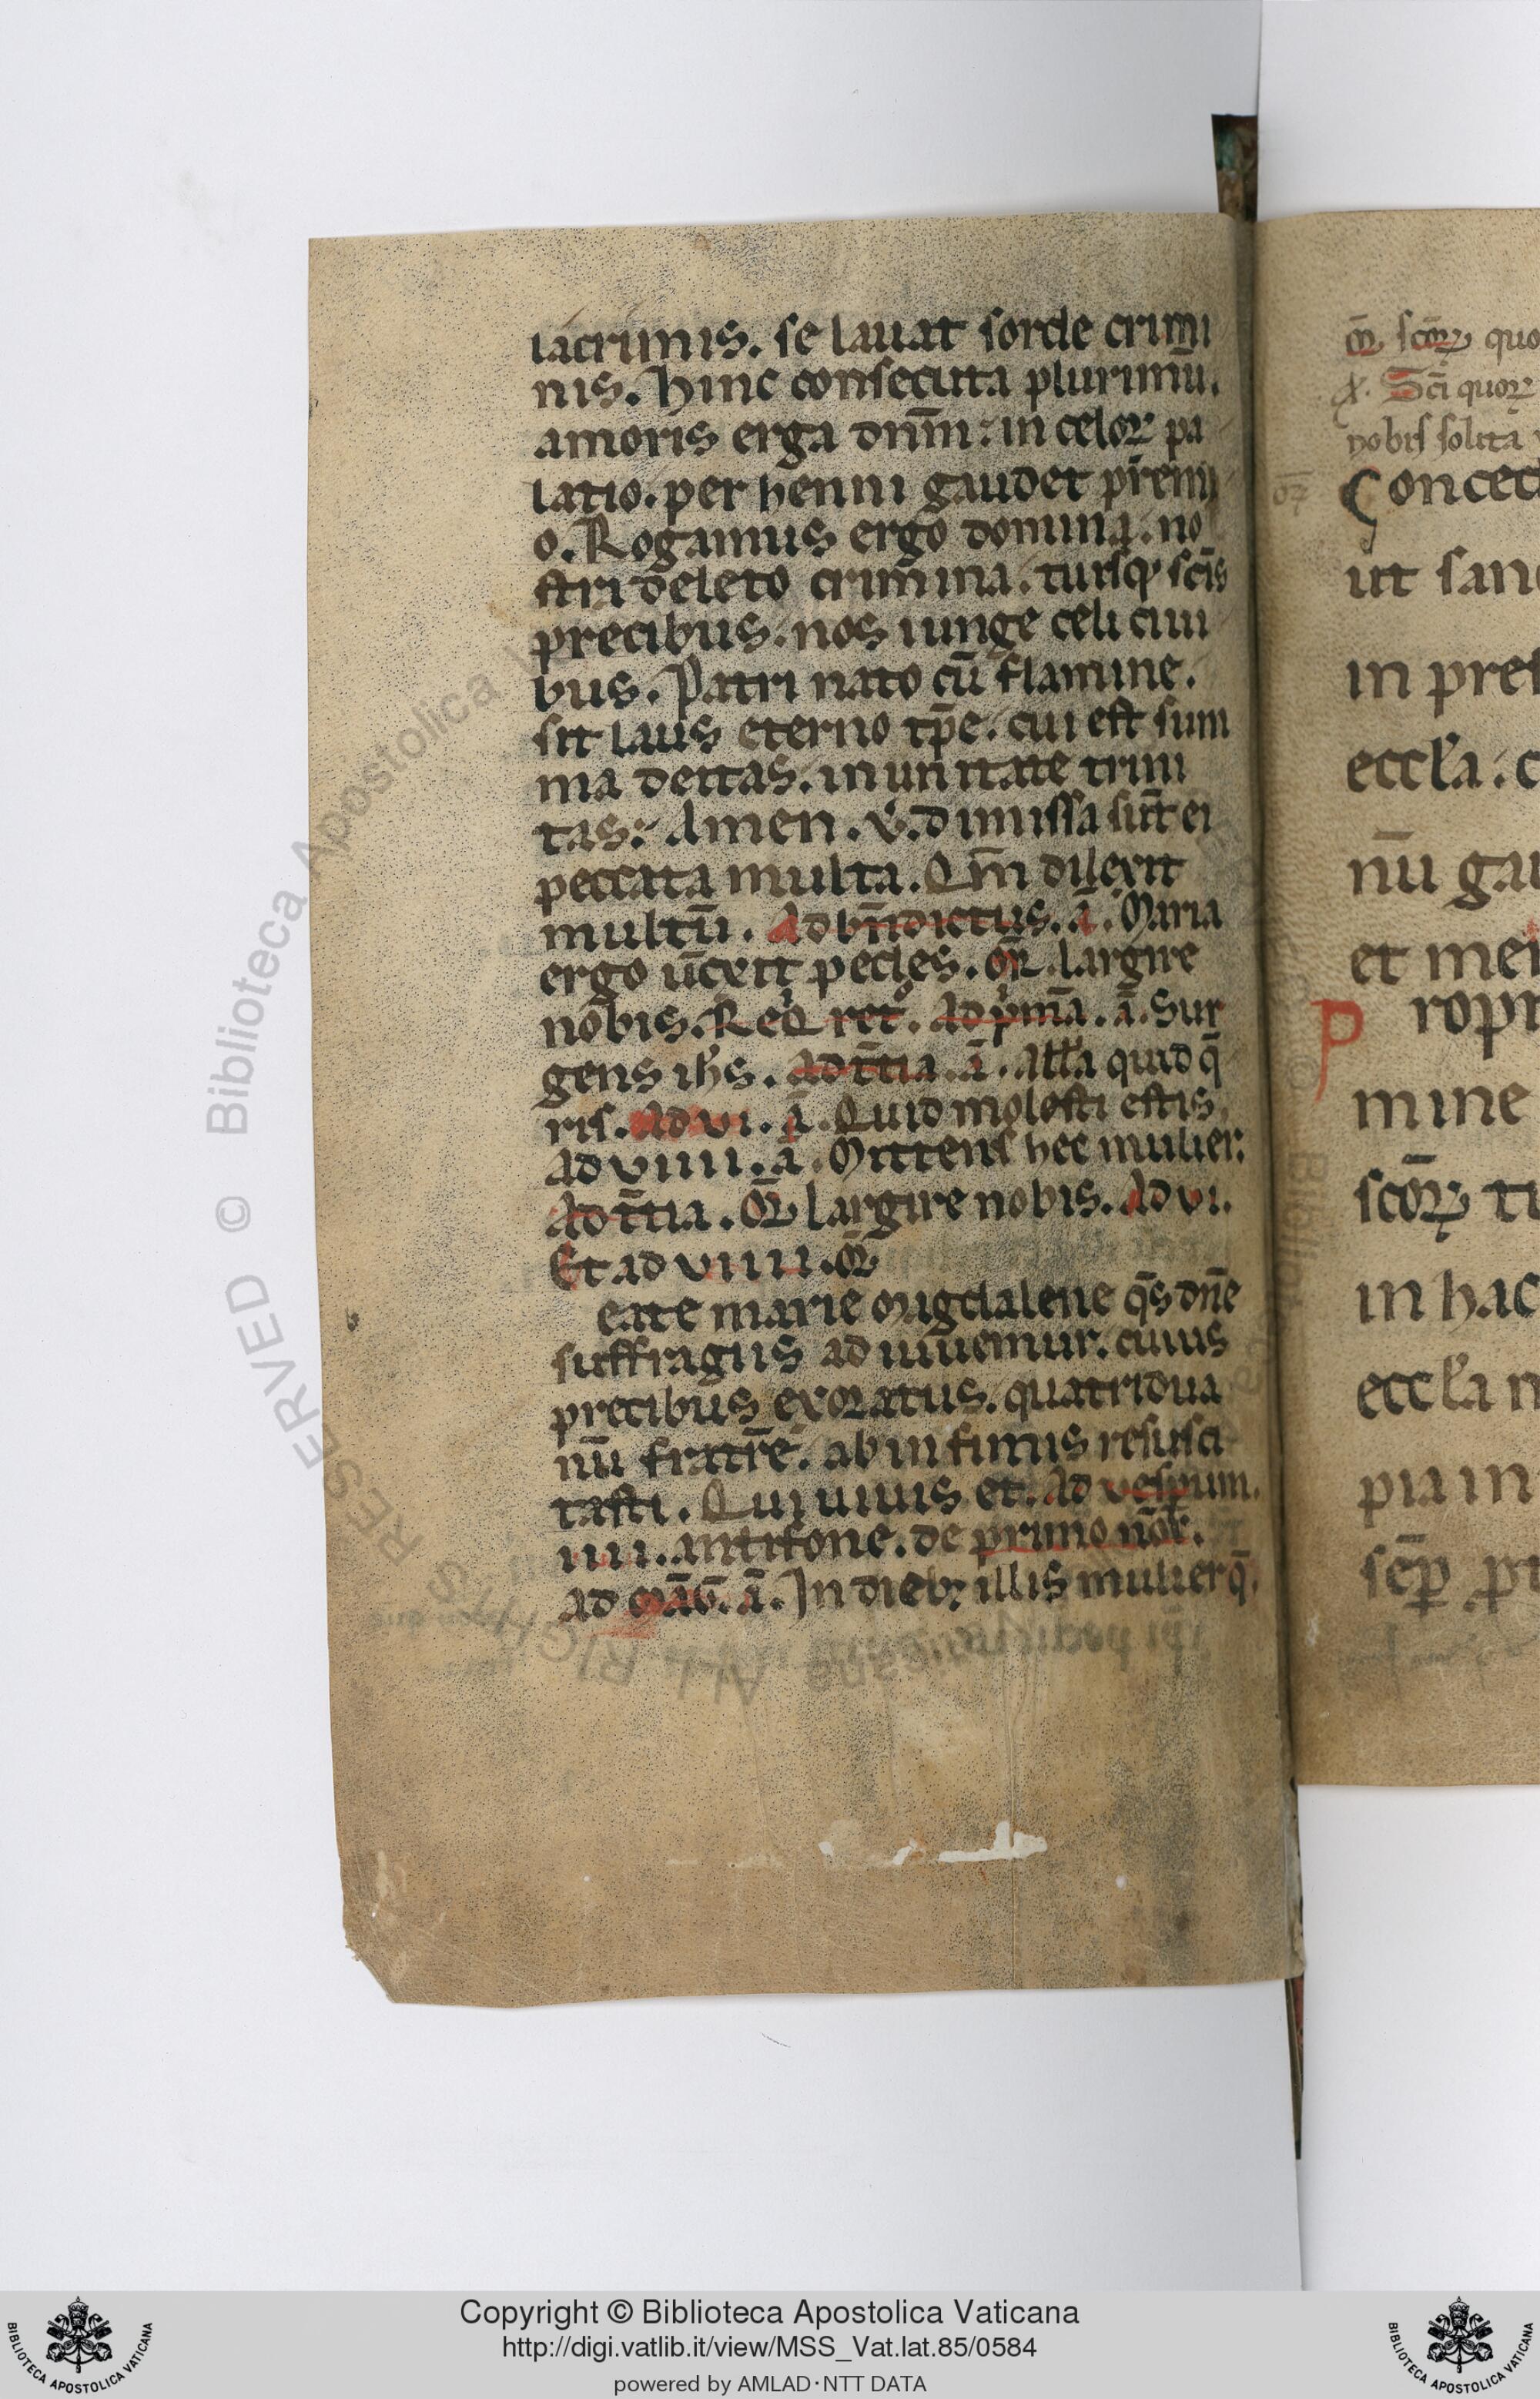 lacrimis. se lauat sorde crimi
nis. Hinc consecuta plurimū.
amoris erga dn̄m: in celoꝝ pa
latio. per henni gaudet p̄remi
o. Rogamus ergo domina. no
stri deleto crimina. tuisq; sc̄is
precibus. nos iunge celi ciui
bus. Patri nato cū flamine.
sit laus eterno tp̄e. cui est sum
ma deitas. in unitate trini
tas: Amen. ℣. dimissa sūt ei
peccata multa. Qm̄ dilexit
multū. Ad bn̄dictus. ā. Maria
ergo ūcxit pedes. oꝝ̄. largire
nobis. Reꝗ ret°. Ad pͥmā. ā. Sur
gens ih̄s. Ad t̄tia. ā. Alla quid q̄
ris. Ad vi. ā. Quid molesti estis
Ad viiii. ā. Mittens hec mulier.
Ad t̄tia. oꝝ̄ largire nobis. Ad vi.
Et ad viiii. oꝝ̄
eate marie magdalene q̄s dn̄e
suffragiis ad iuuemur. cuius
precibus exoratus. quatridua
nū fratrē. ab infimis resusci
tasti. Qui uiuis et. Ad vesp̄um.
iiii. antifone. de primo noc̄t.
ad maḡ. ā. In dieb; illis mulier q̄.
oꝝ̄ sc̄oꝝ quo
Sc̄i quoꝝ
nobis solita
or̄
Conced
ut san
in pre
eccl'a. c
nū gau
et mer
Propi
mine
sc̄oꝝ tu
in hac
eccl'a
pia in
sēp pr
RESERVED © Biblioteca Apostolica
ALL RIGHTS
Copyright © Biblioteca Apostolica Vaticana
http://digi.vatlib.it/view/MSS_Vat.lat.85/0584
powered by AMLAD·NTT DATA
BIBLIOTECA APOSTOLICA VATICANA
BIBLIOTECA APOSTOLICA VATICANA